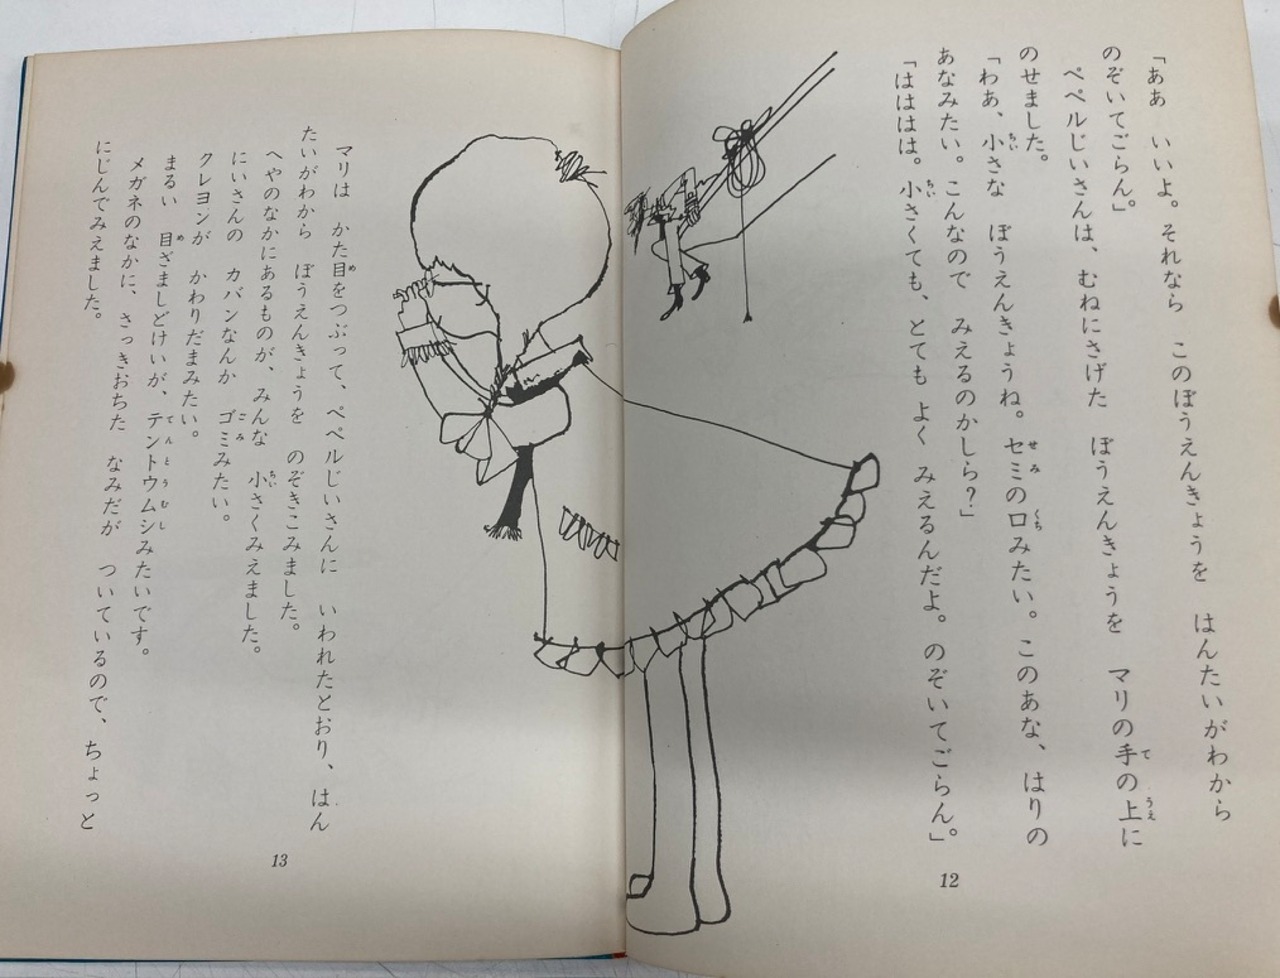 「ああ　いいよ。それなら　このぼうえんきょうを　はんたいがわから
のぞいてごらん。」
ペペルじいさんは、むねにさげた　ぼうえんきょうを　マリの手の上に
のせました。
「わあ、小さな　ぼうえんきょうね。セミの口みたい。このあな、はりの
あなみたい。こんなので　みえるのかしら？」
「はははは。小さくても、とても　よく　みえるんだよ。のぞいてごらん。」
12
マリは　かた目をつぶって、ペペルじいさんに　いわれたとおり、はん
たいがわから　ぼうえんきょうを　のぞきこみました。
へやのなかにあるものが、みんな　小さくみえました。
にいさんの　カバンなんか　ゴミみたい。
クレヨンが　かわりだまみたい。
まるい　目ざましどけいが、テントウムシみたいです。
メガネのなかに、さっきおちた　なみだが　ついているので、ちょっと
にじんでみえました。
13